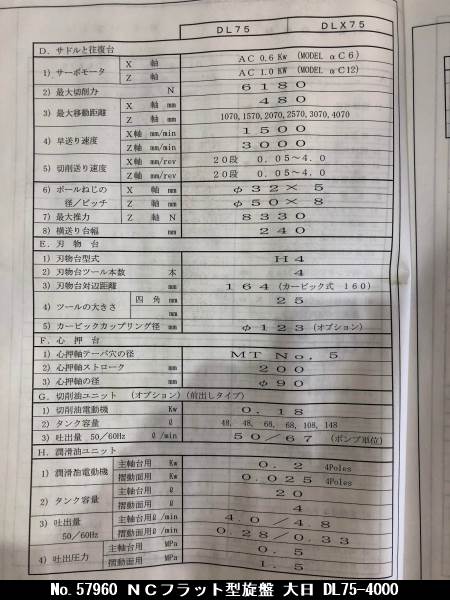 DL75 DLX75
D. サドルと往復台
1) サーボモータ X 軸 AC 0.6 Kw (MODEL αC6)
Z 軸 AC 1.0 Kw (MODEL αC12)
2) 最大切削力 N 6180
3) 最大移動距離 X 軸 mm 480
Z 軸 mm 1070,1570,2070,2570,3070,4070
4) 早送り速度 X軸 mm/min 1500
Z軸 mm/min 3000
5) 切削送り速度 X軸 mm/rev 20段 0.05~4.0
Z軸 mm/rev 20段 0.05~4.0
6) ボールねじの X 軸 mm φ32× 5
径/ピッチ Z 軸 mm φ50× 8
7) 最大推力 Z 軸 N 8330
8) 横送り台幅 mm 240
E. 刃物台
1) 刃物台型式 H4
2) 刃物台ツール本数 本 4
3) 刃物台対辺距離 mm 164 (カービック式 160)
4) ツールの大きさ 四角 mm 25
mm
5) カービックカップリング径 mm φ123 (オプション)
F. 心押台
1) 心押軸テーパ穴の径 MT No. 5
2) 心押軸ストローク mm 200
3) 心押軸の径 mm φ90
G. 切削油ユニット (オプション) (前出しタイプ)
1) 切削油電動機 Kw 0.18
2) タンク容量 ℓ 48, 48, 68, 68, 108, 148
3) 吐出量 50/60Hz ℓ/min 50/67 (ポンプ単位)
H. 潤滑油ユニット
1) 潤滑油電動機 主軸台用 Kw 0.2 4Poles
摺動面用 Kw 0.025 4Poles
2) タンク容量 主軸台用 ℓ 20
摺動面用 ℓ 4
3) 吐出量 主軸台用 ℓ/min 4.0 /4.8
50/60Hz 摺動面用 ℓ/min 0.28/0.33
4) 吐出圧力 主軸台用 MPa 0.5
摺動面用 MPa 1.5
No.57960 NCフラット型旋盤 大日 DL75-4000